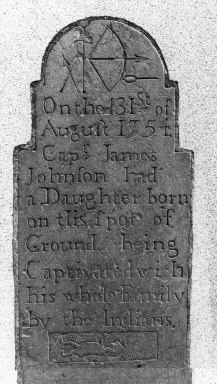 On the 31st of
August 1754
Capt James
Johnson had
a Daughter born
on this spot of
Ground, being
Captivated with
his whole Family
by the Indians.